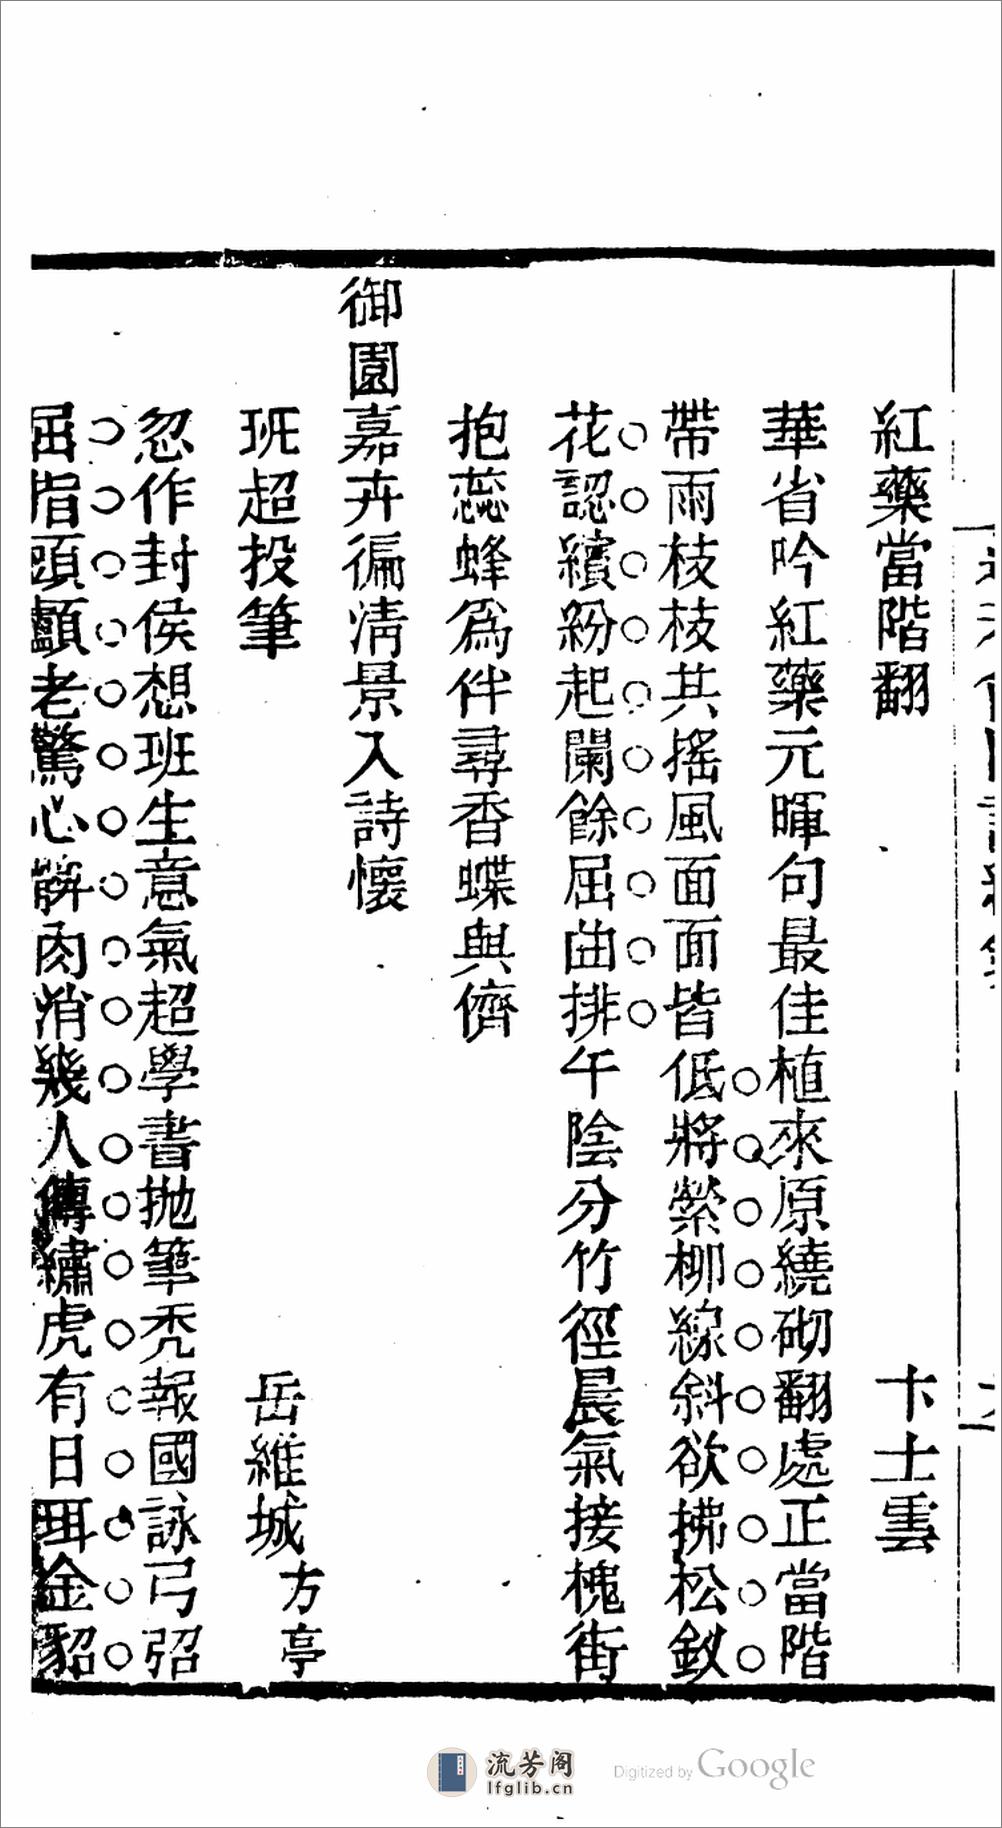 紅藥當階翻
卞士雲
華省吟紅藥元暉句最佳植來原繞砌翻處正當階
帶雨枝枝共搖風面面皆低將縈柳線斜欲拂松釵
花認繽紛起闌餘屈曲排午陰分竹徑晨氣接槐街
抱蕊蜂爲伴尋香蝶與儕
御園嘉卉徧清景入詩懷
班超投筆
岳維城 方亭
忽作封侯想班生意氣超學書拋筆禿報國詠弓弨
屈指頭顱老驚心髀肉消幾人傳繡虎有日珥金貂
流芳阁
lfglib.cn
Digitized by Google